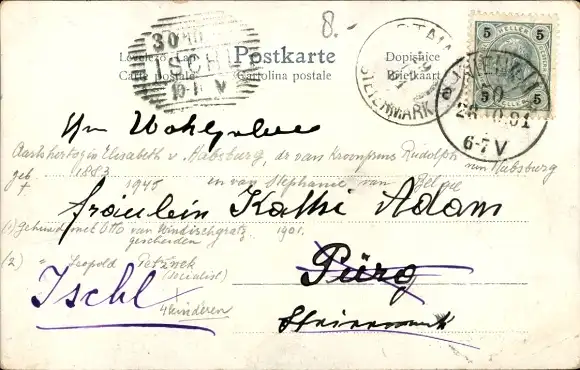 8.-
30
ISCHL
10-11 V
STEIERMARK
5 HELLER 5
5 5
WIEN
50
6-7 V
Levelező-Lap
Postkarte
Dopisnice
Carte postale
Cartolina postale
Briefkaart
Ihr Wohlgeboren
Aartshertogin Elisabeth v. Habsburg, dr van Kroonprins Rudolph von Habsburg
geb 1883 en van Stephanie van België
+ 1945
Fräulein Kathi Adam
(1) gehuwd met Otto van Windischgratz 1901.
gescheiden
(2) " Leopold Petznek
(socialist)
Pürg
Ischl
4 kinderen
Steiermark